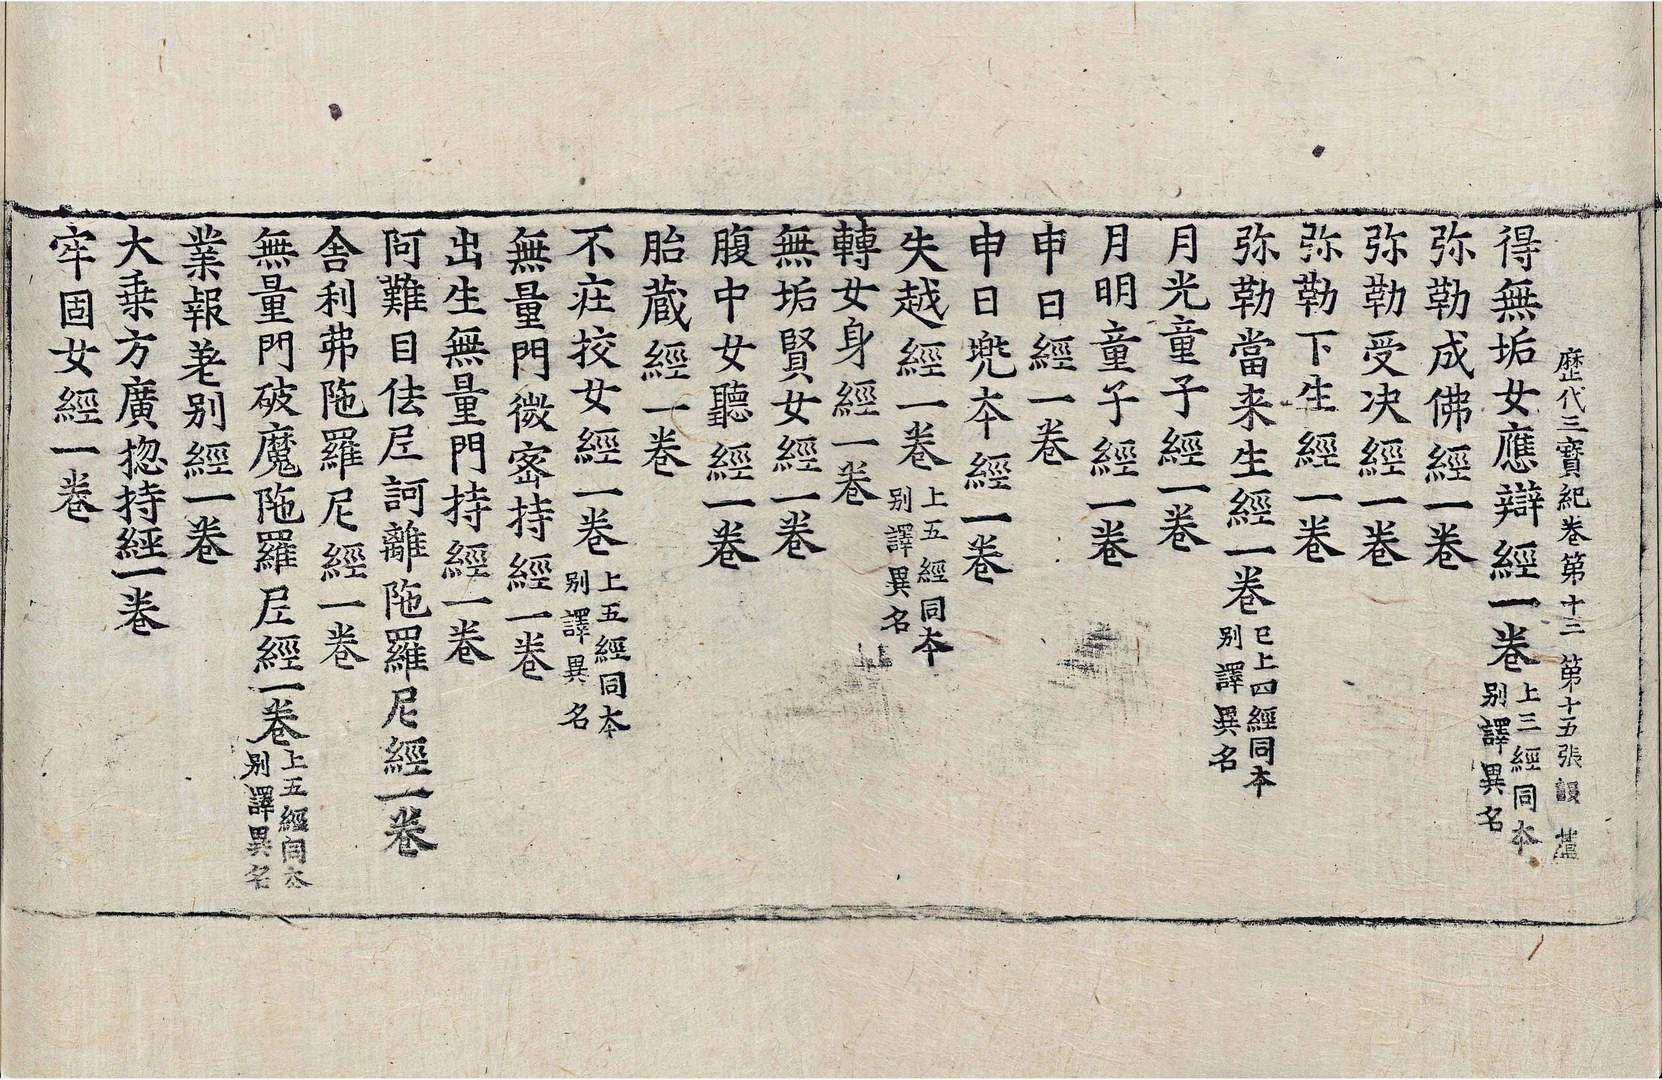 歷代三寶紀卷第十三 第十五張 設
得無垢女應辯經一卷 上三經同本别譯異名
弥勒成佛經一卷
弥勒受决經一卷
弥勒下生經一卷
弥勒當来生經一卷 已上四經同本别譯異名
月光童子經一卷
月明童子經一卷
申日經一卷
申日兜本經一卷
失越經一卷 上五經同本别譯異名
轉女身經一卷
無垢賢女經一卷
腹中女聽經一卷
胎蔵經一卷
不庄挍女經一卷 上五經同本别譯異名
無量門微密持經一卷
出生無量門持經一卷
阿難目佉尼訶離陁羅尼經一卷
舍利弗陁羅尼經一卷
無量門破魔陁羅尼經一卷 上五經同本别譯異名
業報差别經一卷
大乗方廣揔持經一卷
牢固女經一卷